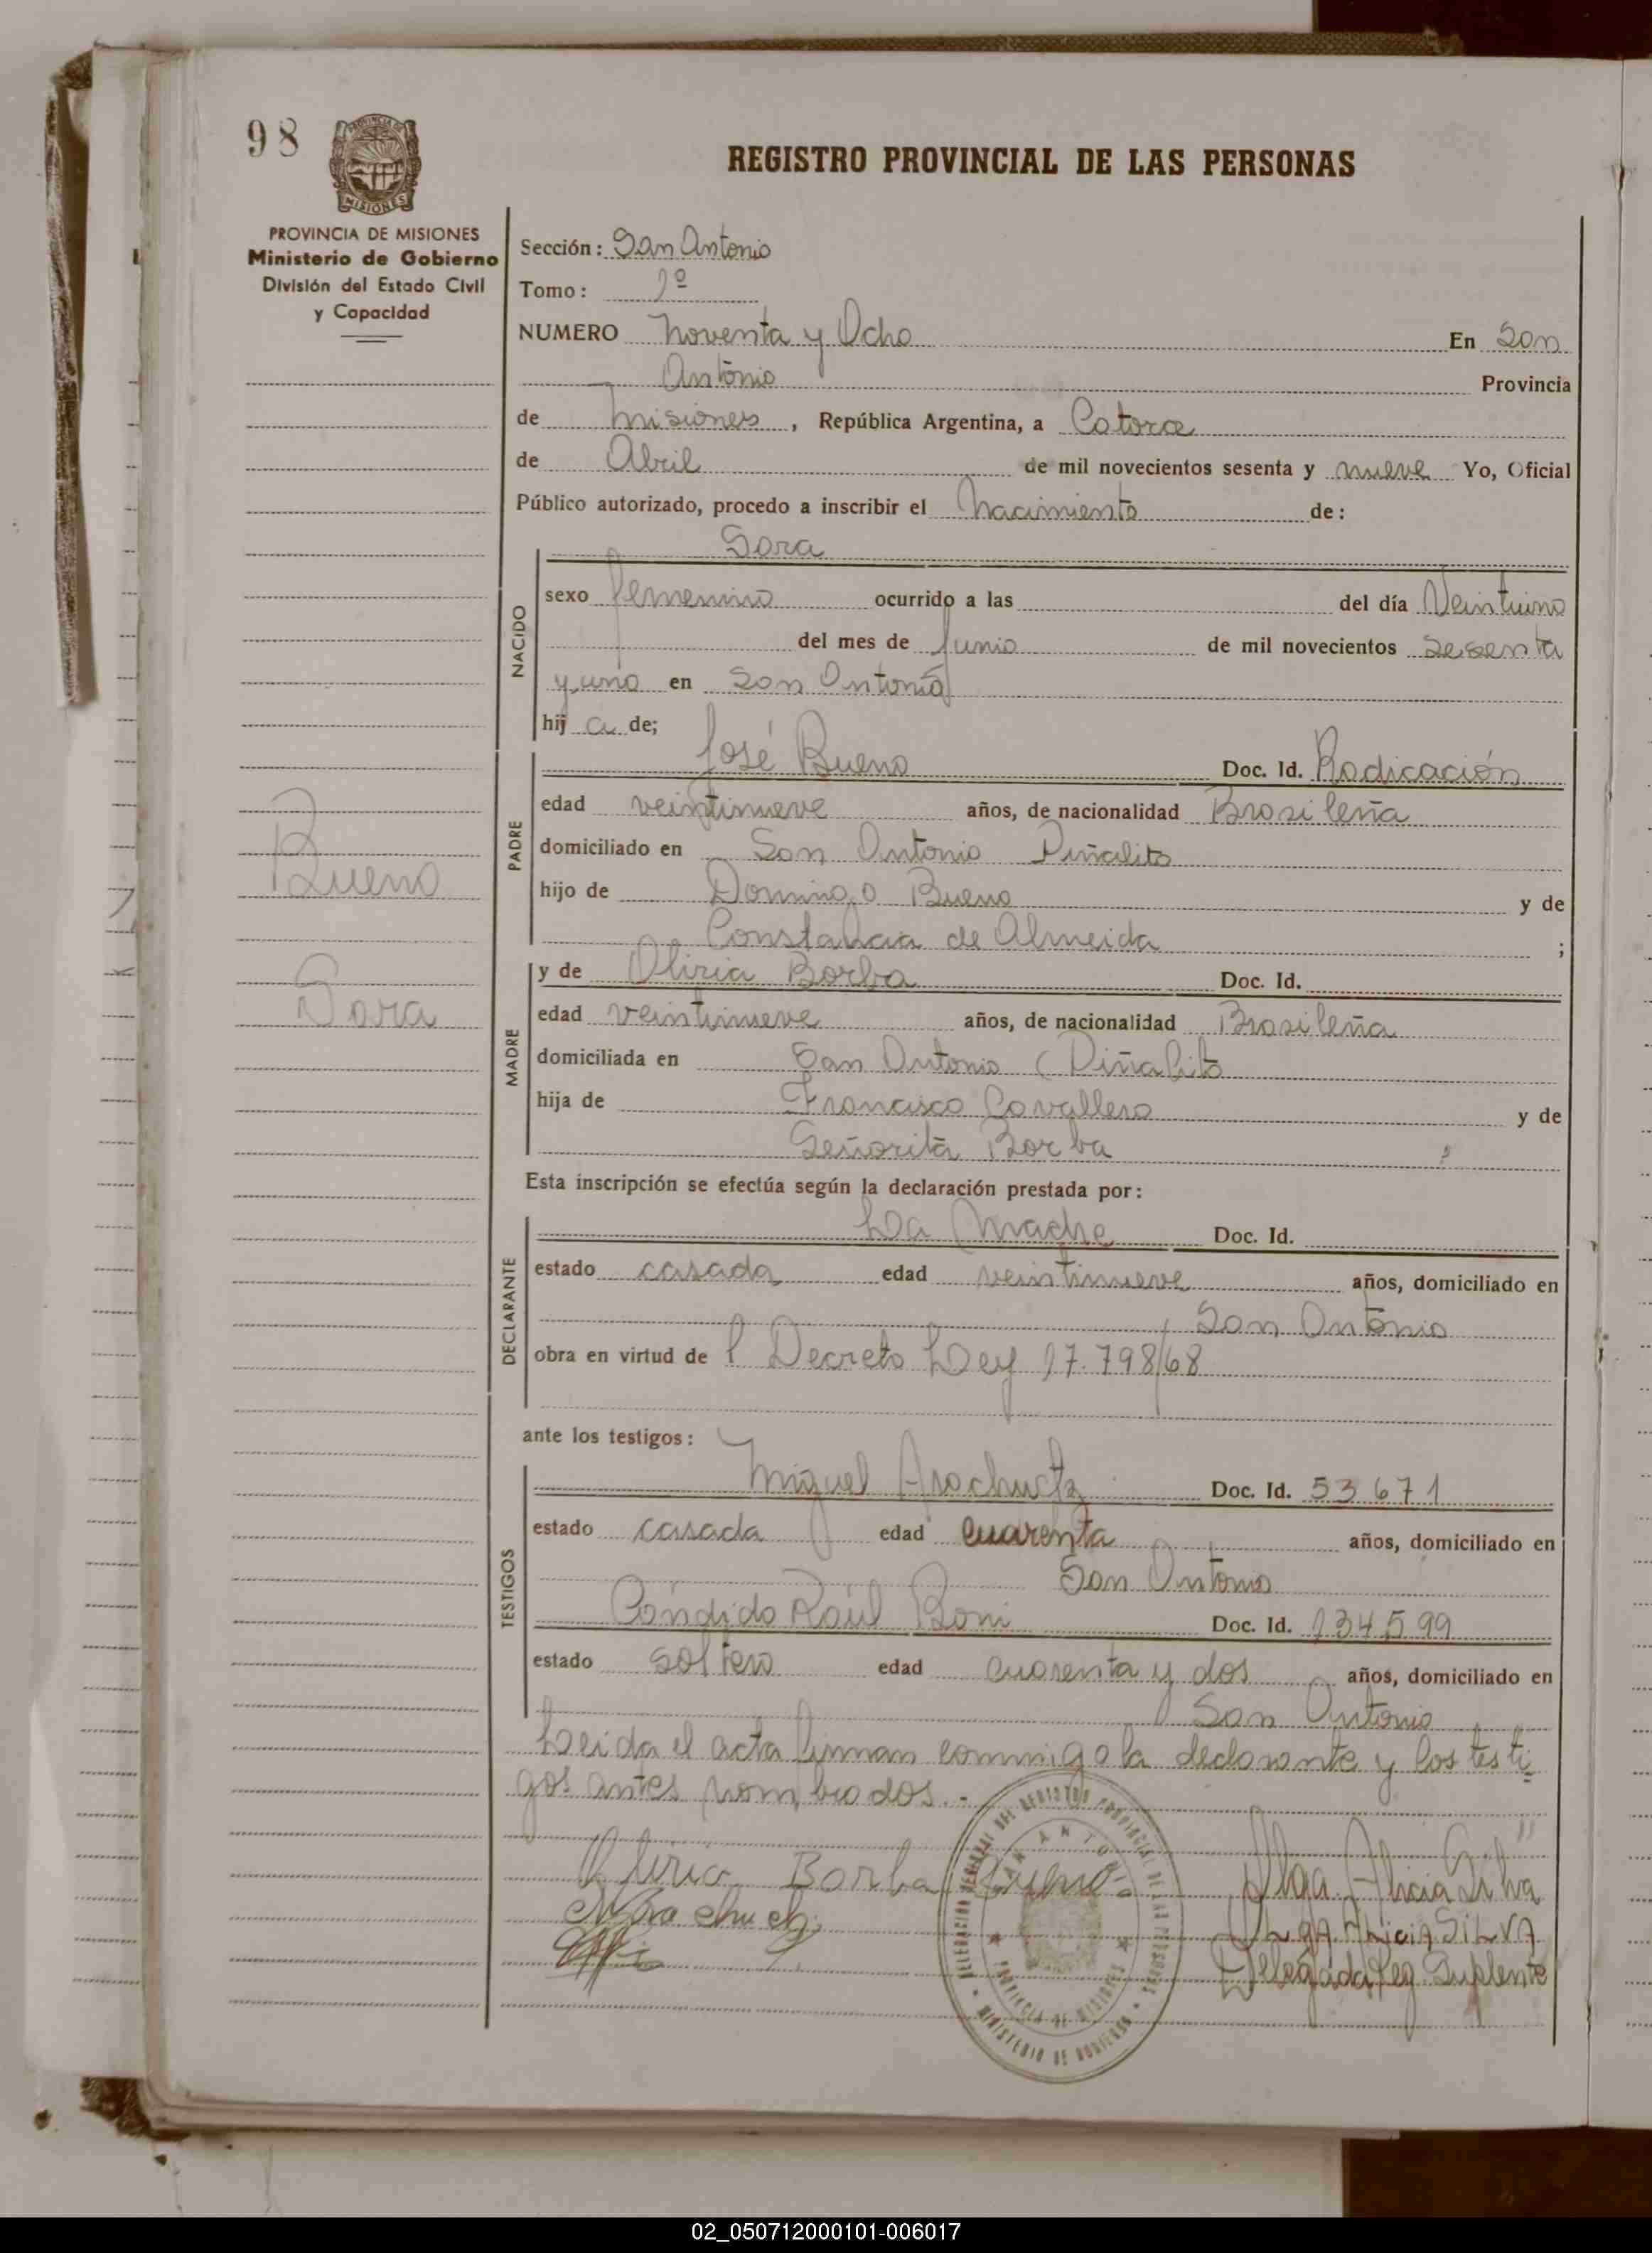 98
PROVINCIA DE MISIONES
PROVINCIA DE MISIONES
Ministerio de Gobierno
División del Estado Civil
y Capacidad
REGISTRO PROVINCIAL DE LAS PERSONAS
Sección: San Antonio
Tomo: 1º
NUMERO Noventa y Ocho En San
Antonio Provincia
de Misiones, República Argentina, a Catorce
de Abril de mil novecientos sesenta y nueve Yo, Oficial
Público autorizado, procedo a inscribir el Nacimiento de:
Sara
NACIDO
sexo femenino ocurrido a las del día Veintiuno
del mes de Junio de mil novecientos sesenta
y uno en San Antonio
hij a de;
José Bueno Doc. Id. Radicación
PADRE
edad veintinueve años, de nacionalidad Brasileña
domiciliado en San Antonio Piñalito
hijo de Domingo Bueno y de
Constancia de Almeida ;
Bueno
Sara
y de Oliria Borba Doc. Id.
MADRE
edad veintinueve años, de nacionalidad Brasileña
domiciliada en San Antonio (Piñalito
hija de Francisco Cavallero y de
Señorita Borba ;
Esta inscripción se efectúa según la declaración prestada por:
La Madre Doc. Id.
DECLARANTE
estado casada edad veintinueve años, domiciliado en
San Antonio
obra en virtud de l Decreto Ley 17.798/68
ante los testigos:
Miguel Doc. Id. 53671
TESTIGOS
estado casada edad cuarenta años, domiciliado en
San Antonio
Cándido Raúl Boni Doc. Id. 134599
estado soltero edad cuarenta y dos años, domiciliado en
San Antonio
Leida el acta firman conmigo la declarante y los testi-
gos antes nombrados.-
Oliria Borba Bueno
Olga Alicia Silva
OLgA ALiciA SiLVA
Delegada Reg. Suplente
DELEGACION SECCIONAL DEL REGISTRO PROVINCIAL DE LAS PERSONAS
SAN ANTONIO
PROVINCIA DE MISIONES
MINISTERIO DE GOBIERNO
02_050712000101-006017